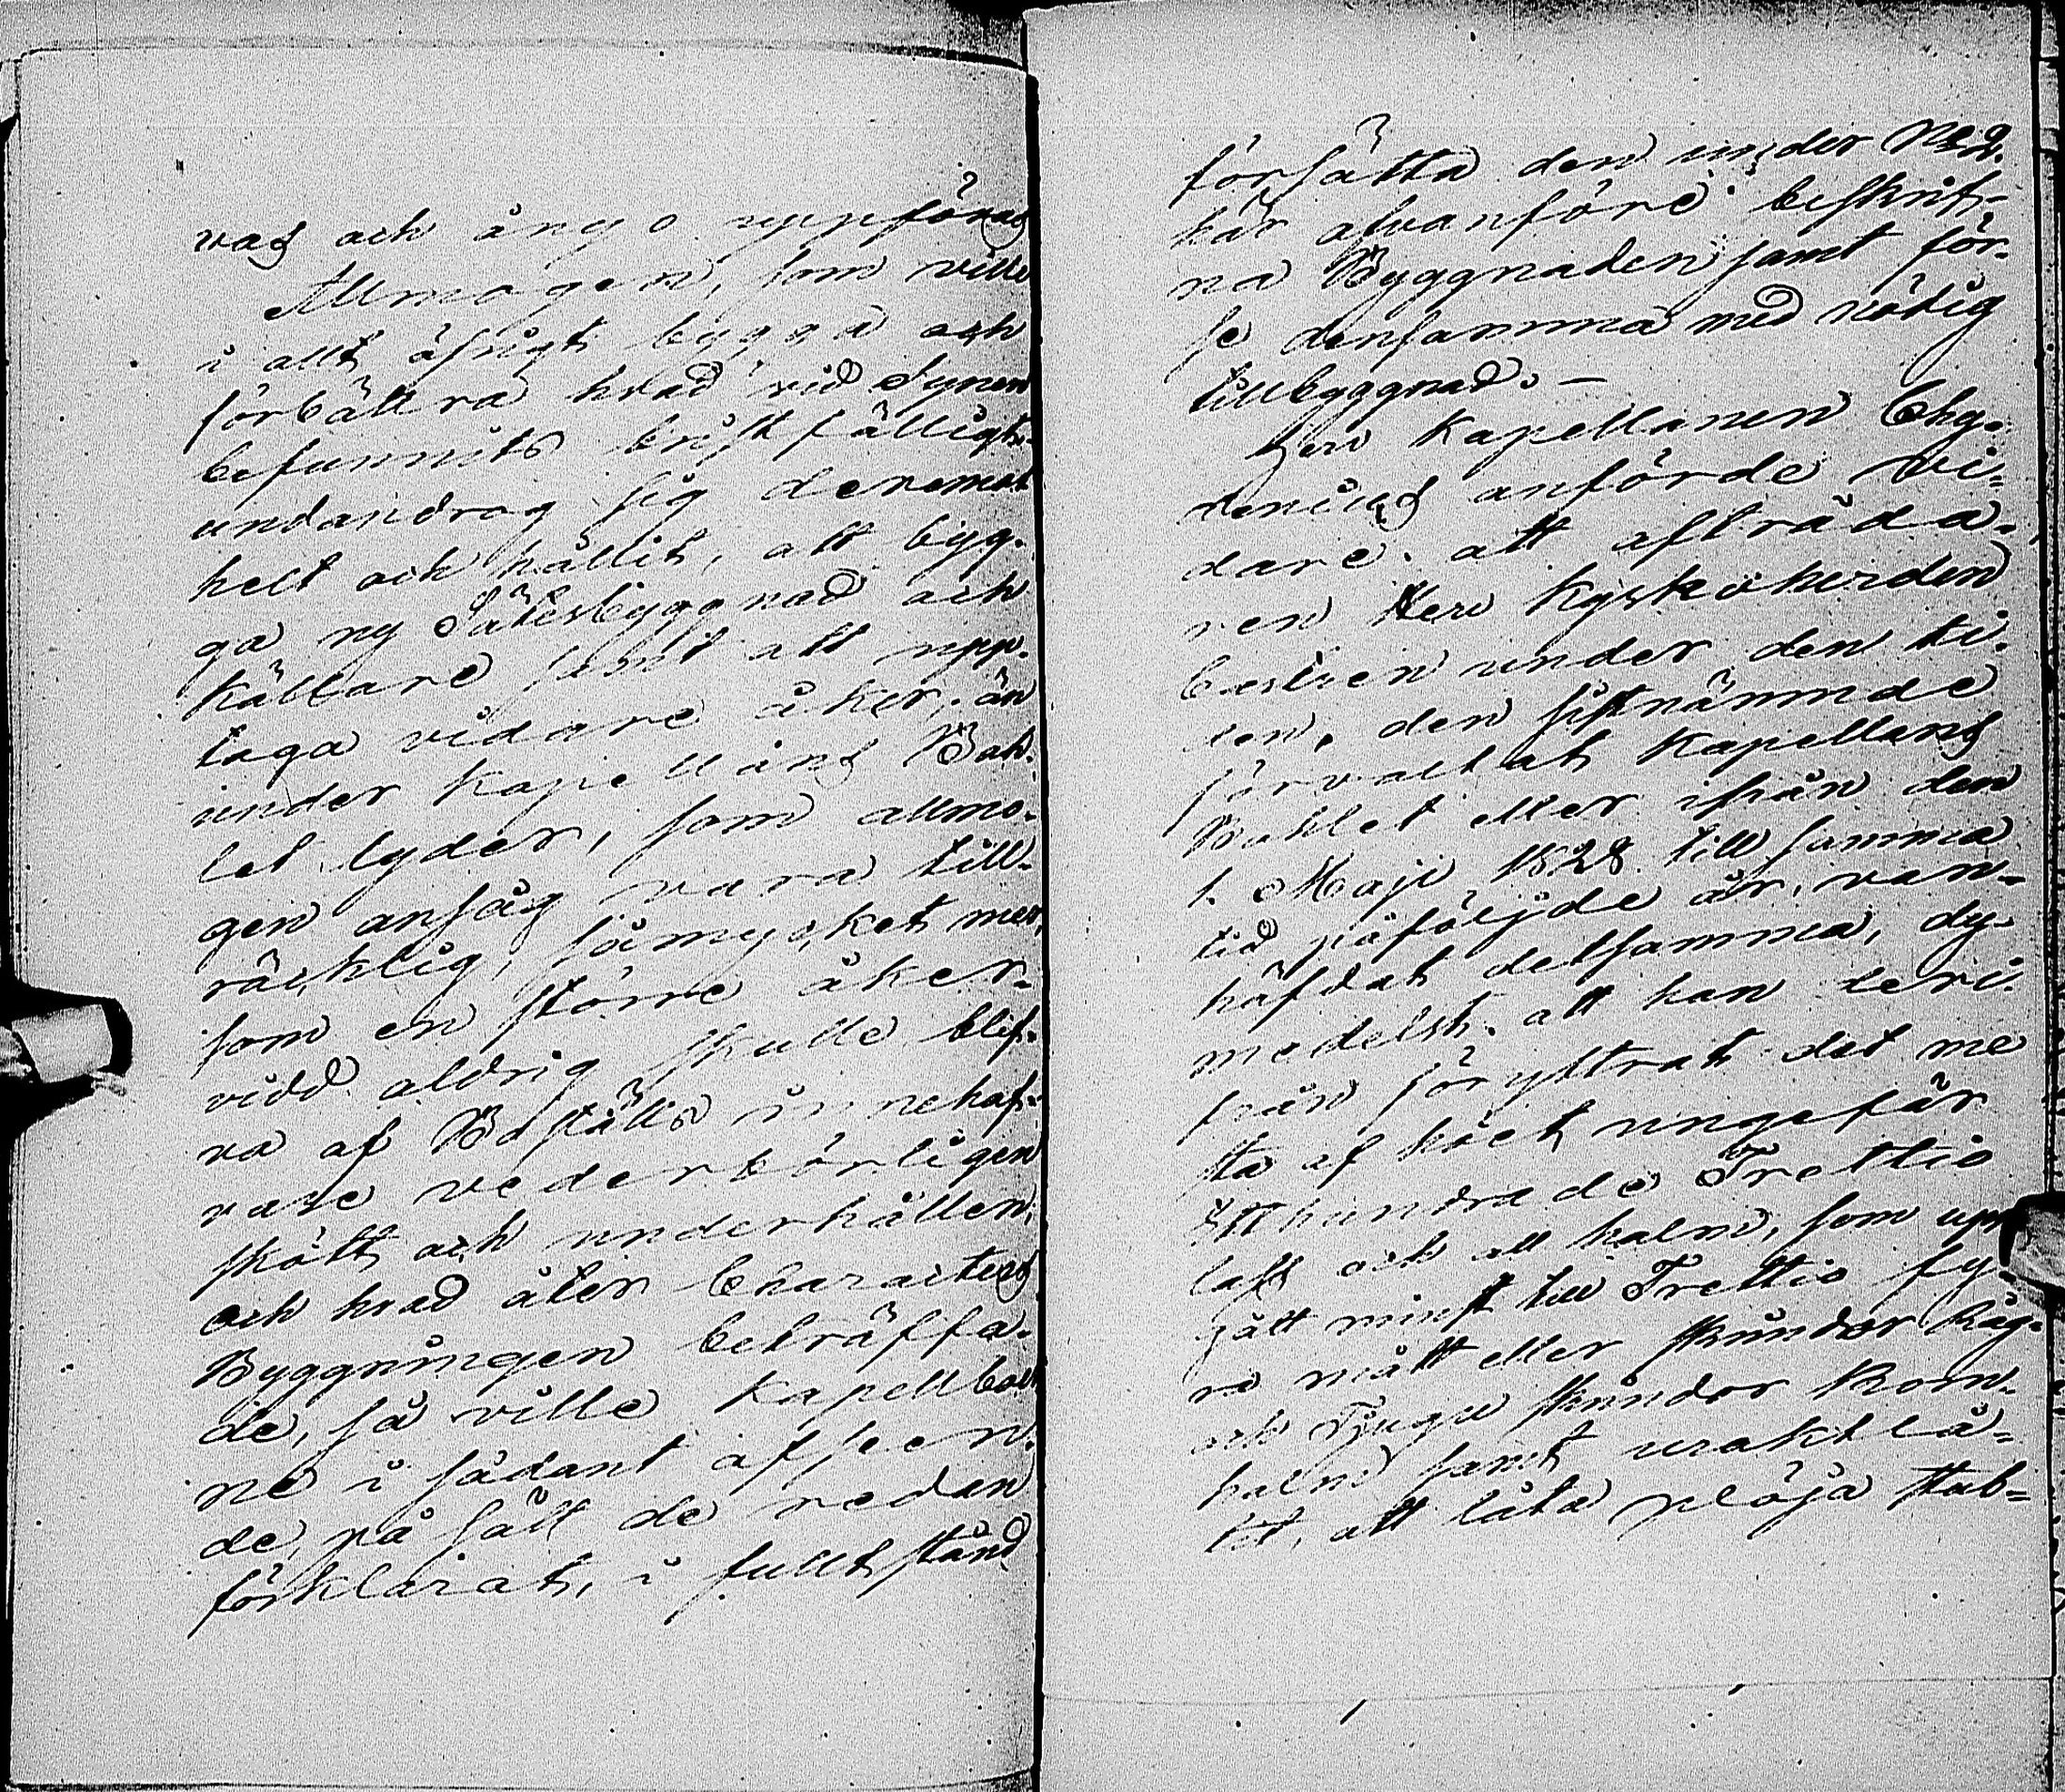 vas och ånyo uppföras
Allmogen, som ville
i allt öfrigt bygga och
förbättra hvad vid Synen
befunnits bristfälligt
undandrog sig deremot
helt och hållit, att byg-
ga ny Sätesbyggnad och
källare samt att upp-
taga vidare åker, än
under Kapellans Boh-
let lyder, som allmo-
gen ansåg vara till-
räcklig, så mycket mer,
som en större åker-
vidd aldrig skulle blif-
va af Boställs innehaf-
vare vederbörligen
skött och underhållen,
och hvad åter Characters
Byggningen beträffa-
de, så ville Kapellboer
ne i sådant afseen-
de, på sätt de redan
förklarat, i fullt stånd
försätta den under N:o
här ofvanföre beskrif-
na Byggnaden samt för-
se densamma med nödig
tillbyggnad. –
Herr Kapellanen
anförde vi-
dare att afträda-
ren Herr Kyrkoherden
under den ti-
den, den sistnämnde
förvaltat Kapellans
Bohlet eller ifrån den
1. Maji 1828 till samma
tid påföljde år, van-
häfdat detsamma, dy-
medelst att han deri-
från föryttrat det me
sta af höet, ungefär
Ett hundrade Trettio
lass och all halm, som upp
gått minst till Trettio fy-
ra mått eller skrindor Råg-
och Tjugu skrindor Korn-
halm samt uraktlå-
tit, att låta plöja stub-